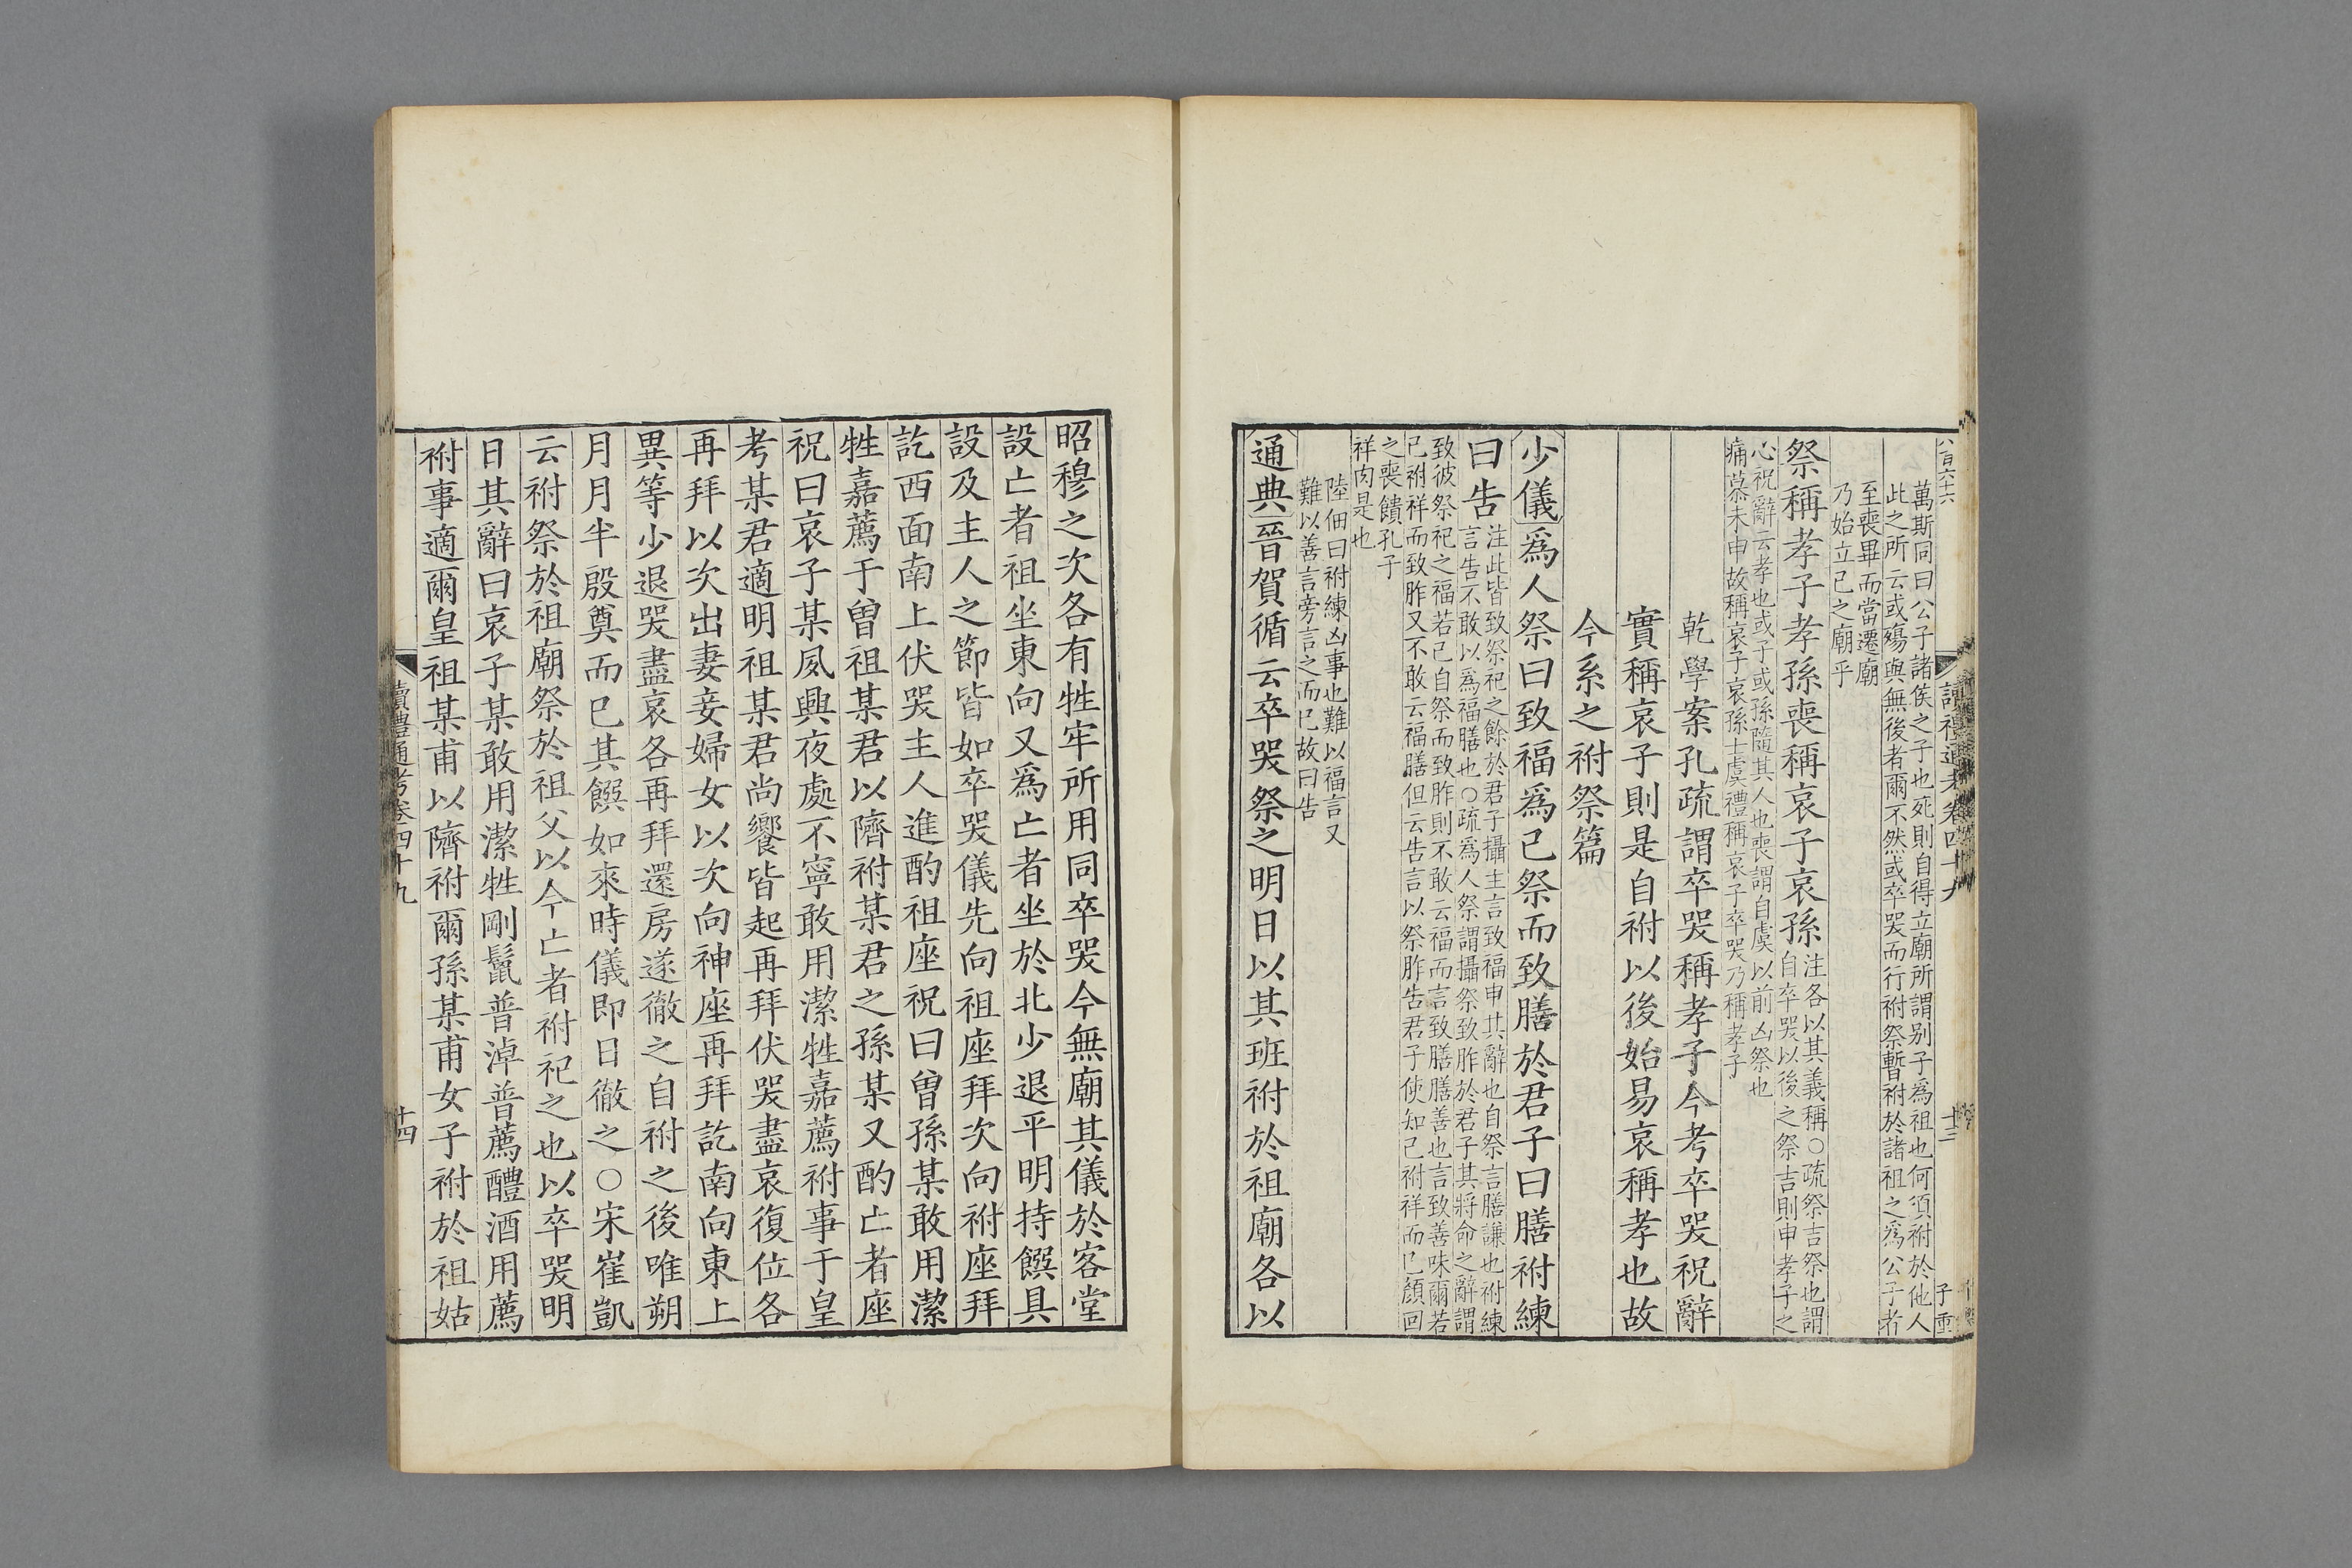 八百六十六
讀禮通考卷四十九
十三
子重
萬斯同曰公子諸侯之子也死則自得立廟所謂别子為祖也何須祔於他人
此之所云或殤與無後者爾不然或卒哭而行祔祭暫祔於諸祖之為公子者
至喪畢而當遷廟
乃始立己之廟乎
祭稱孝子孝孫喪稱哀子哀孫
注各以其義稱○疏祭吉祭也謂
自卒哭以後之祭吉則申孝子之
心祝辭云孝也或子或孫隨其人也喪謂自虞以前凶祭也
痛慕未申故稱哀子哀孫士虞禮稱哀子卒哭乃稱孝子
乾學案孔疏謂卒哭稱孝子今考卒哭祝辭
實稱哀子則是自祔以後始易哀稱孝也故
今系之祔祭篇
少儀為人祭曰致福為己祭而致膳於君子曰膳祔練
曰告
注此皆致祭祀之餘於君子攝主言致福申其辭也自祭言膳謙也祔練
言告不敢以為福膳也○疏為人祭謂攝祭致胙於君子其將命之辭謂
致彼祭祀之福若己自祭而致胙則不敢云福而言致膳膳善也言致善味爾若
己祔祥而致胙又不敢云福膳但云告言以祭胙告君子使知己祔祥而已顏回
之喪饋孔子
祥肉是也
陸佃曰祔練凶事也難以福言又
難以善言旁言之而已故曰告
通典晉賀循云卒哭祭之明日以其班祔於祖廟各以
昭穆之次各有牲牢所用同卒哭今無廟其儀於客堂
設亡者祖坐東向又為亡者坐於北少退平明持饌具
設及主人之節皆如卒哭儀先向祖座拜次向祔座拜
訖西面南上伏哭主人進酌祖座祝曰曾孫某敢用潔
牲嘉薦于曾祖某君以隮祔某君之孫某又酌亡者座
祝曰哀子某夙興夜處不寧敢用潔牲嘉薦祔事于皇
考某君適明祖某君尚饗皆起再拜伏哭盡哀復位各
再拜以次出妻妾婦女以次向神座再拜訖南向東上
異等少退哭盡哀各再拜還房遂徹之自祔之後唯朔
月月半殷奠而已其饌如來時儀即日徹之○宋崔凱
云祔祭於祖廟祭於祖父以今亡者祔祀之也以卒哭明
日其辭曰哀子某敢用潔牲剛鬣普淖普薦醴酒用薦
祔事適爾皇祖某甫以隮祔爾孫某甫女子祔於祖姑
讀禮通考卷四十九
十四